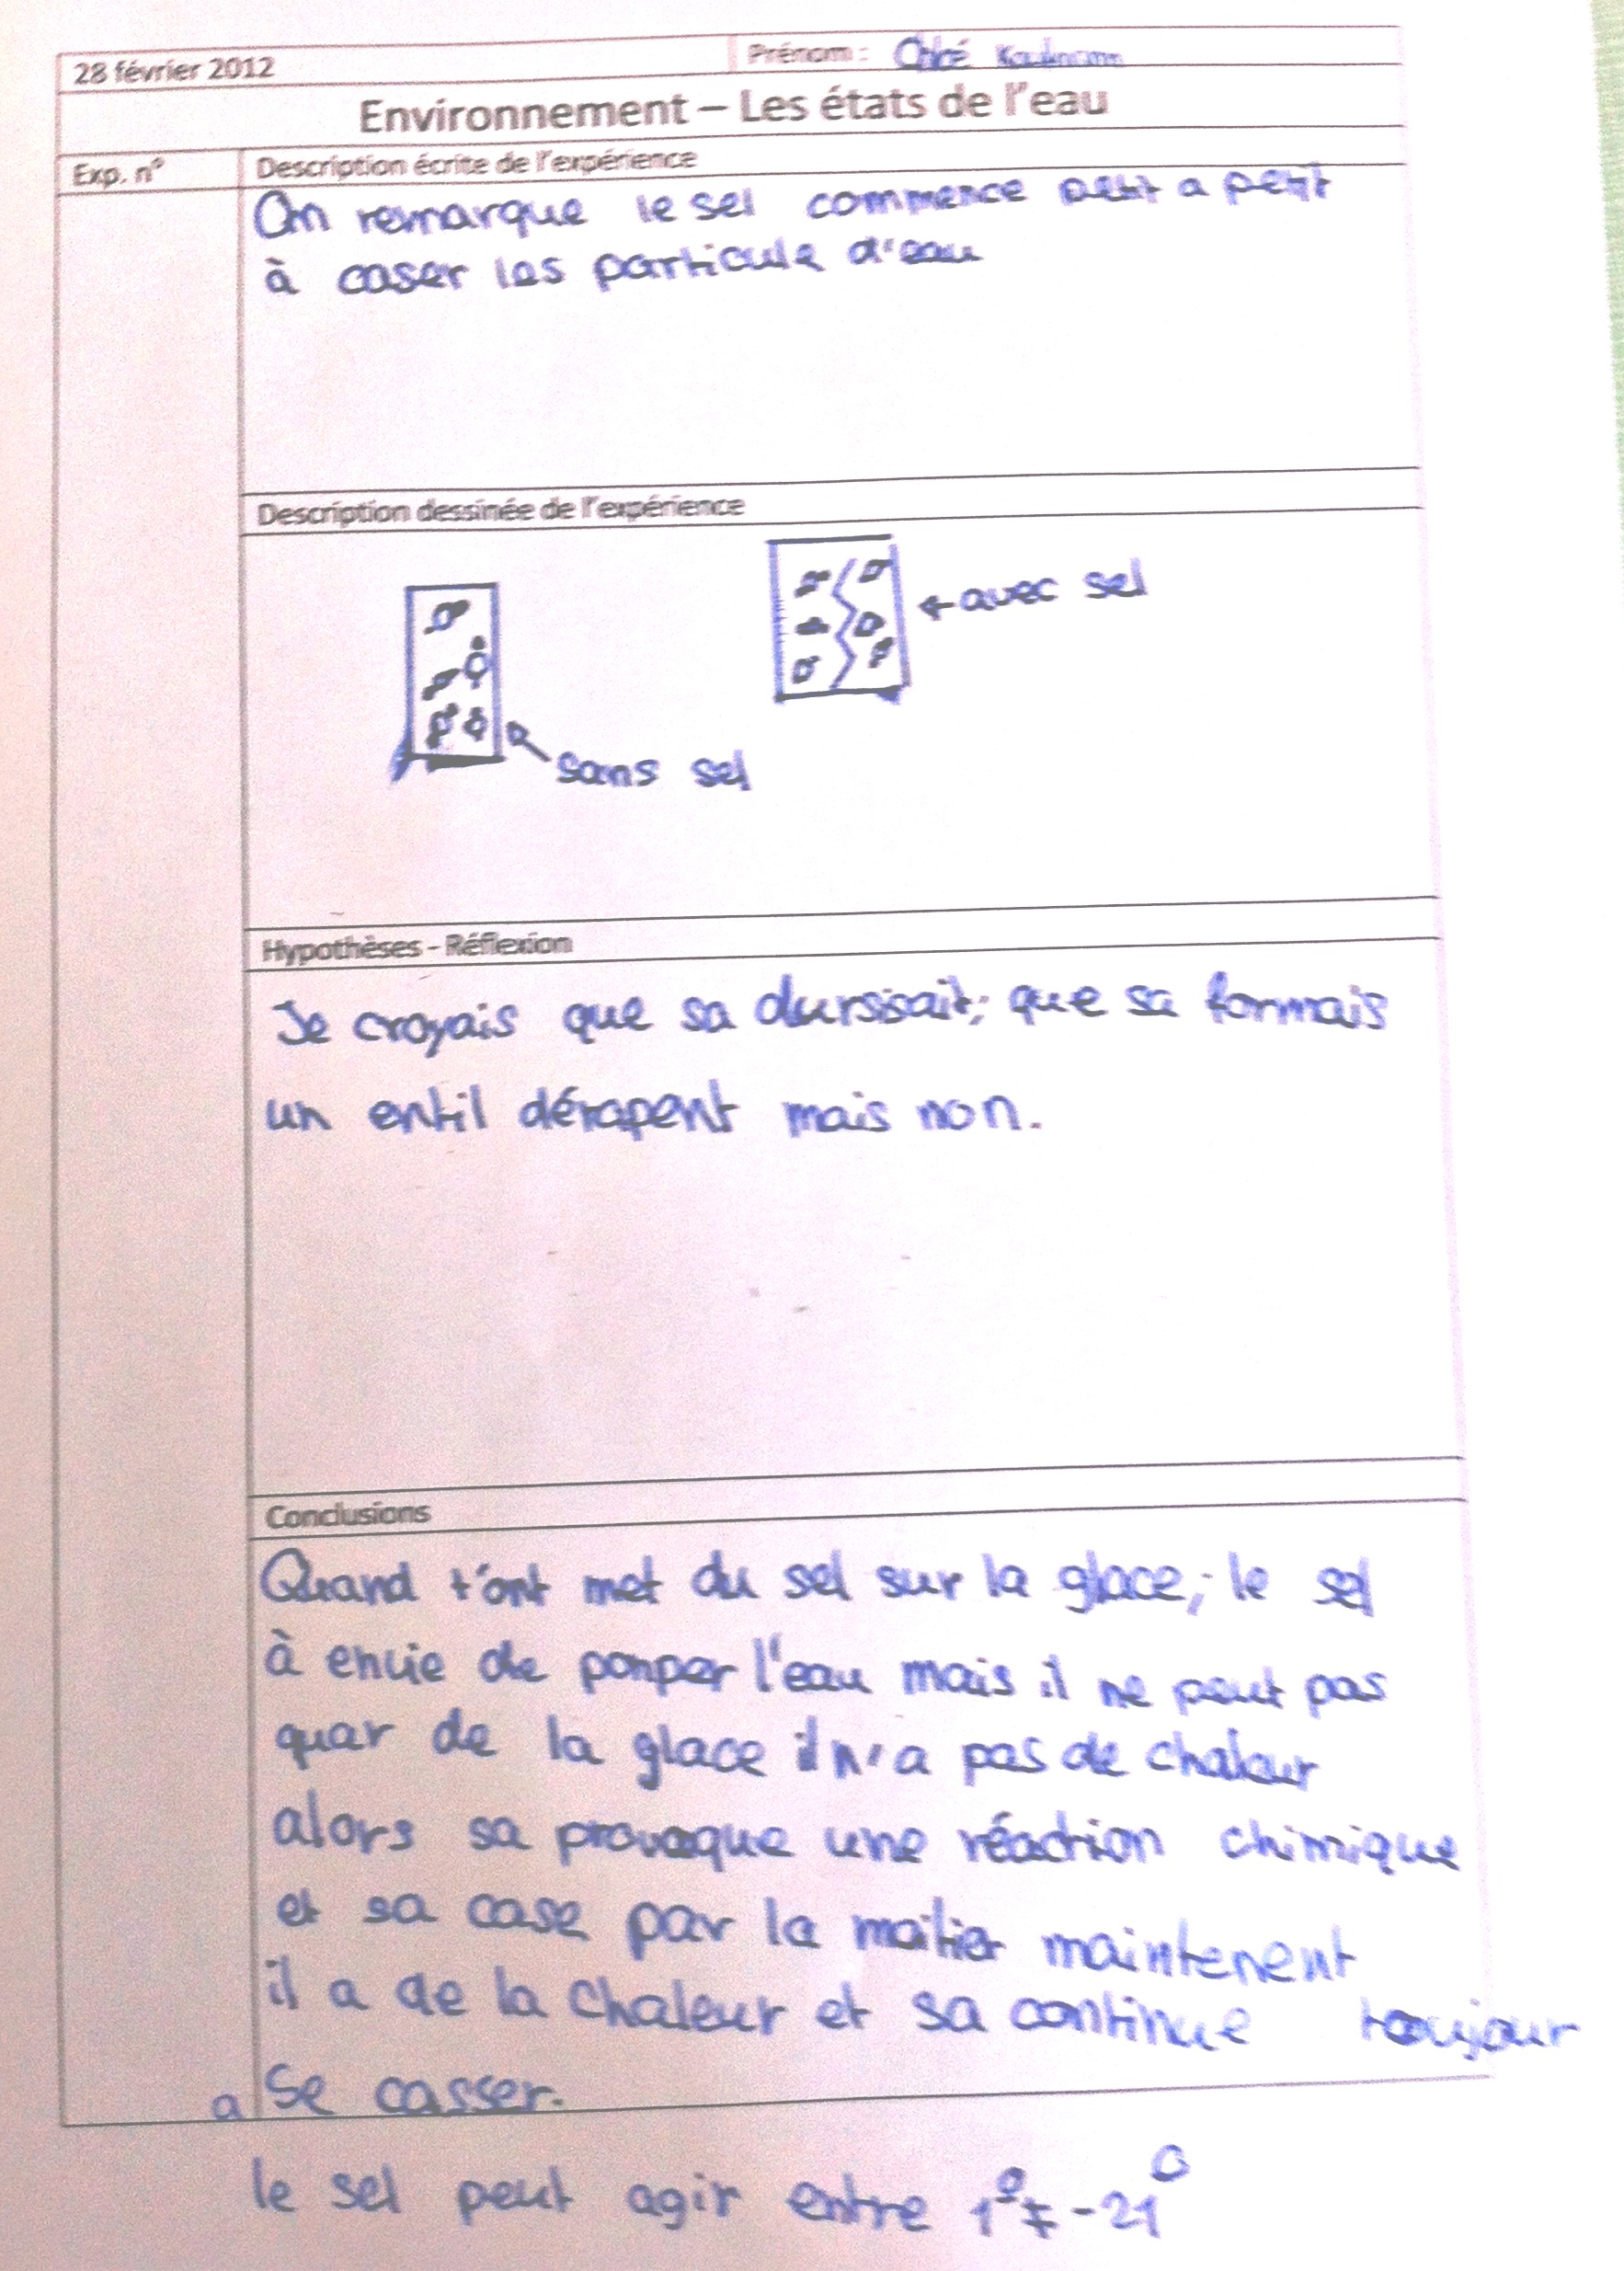 28 février 2012
Prénom : Chloé
Environnement – Les états de l'eau
Exp. n°
Description écrite de l'expérience
On remarque le sel commence petit a petit
à caser les particule d'eau
Description dessinée de l'expérience
avec sel
sans sel
Hypothèses - Réflexion
Je croyais que sa dursisait; que sa formais
un entil dérapent mais non.
Conclusions
Quand t'ont met du sel sur la glace, le sel
à envie de pomper l'eau mais il ne peut pas
quar de la glace il n'a pas de chaleur
alors sa provoque une réaction chimique
et sa case par la maitier maintenent
il a de la chaleur et sa continue toujour
a se casser.
le sel peut agir entre 1° -21°